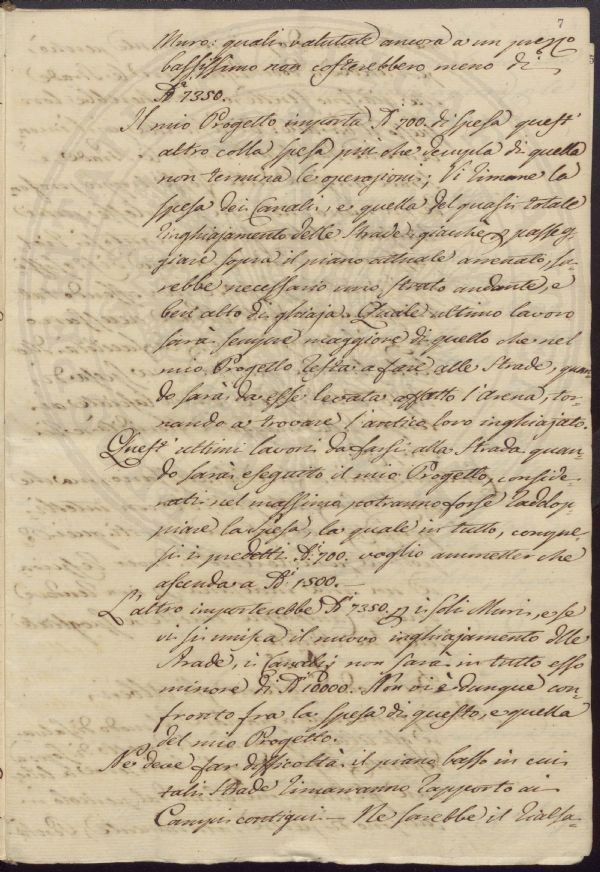 7
Muro: quali valutate ancora a un prezzo
bassissimo non costerebbero meno di
D.i 7350.
Il mio Progetto importa D.i 700. di spesa quest'
altro colla spesa più che decupla di quella
non termina le operazioni; Vi rimane la
spesa dei Canali, e quella del quasi totale
inghiajamento delle Strade: giacchè p passeg-
giare sopra il piano attuale arenato, sa-
rebbe necessario uno strato andante, e
ben alto di ghiaja. Quale ultimo lavoro
sarà sempre maggiore di quello che nel
mio Progetto resta a fare alle Strade, quan-
do sarà da esse levata affatto l'arena, tor-
nando a trovare l'antico loro inghiajato.
Quest'ultimi lavori da farsi alla Strada quan-
do sarà eseguito il mio Progetto, conside-
rati nel massimo potranno forse raddop-
piare la spesa, la quale in tutto, compre-
si i predetti D.i 700. voglio ammetter che
ascenda a D.i 1500.—
L'altro importerebbe D.i 7350. p i soli Muri, e se
vi si misca il nuovo inghiajamento delle
Strade, i Canali; non sarà in tutto esso
minore di D.i 10000. Non vi è dunque con-
fronto fra la spesa di questo, e quella
del mio Progetto.
Ne deve far difficoltà il piano basso in cui
tali Strade rimarranno rapporto ai
Campi contigui — Ne sarebbe il rialza-